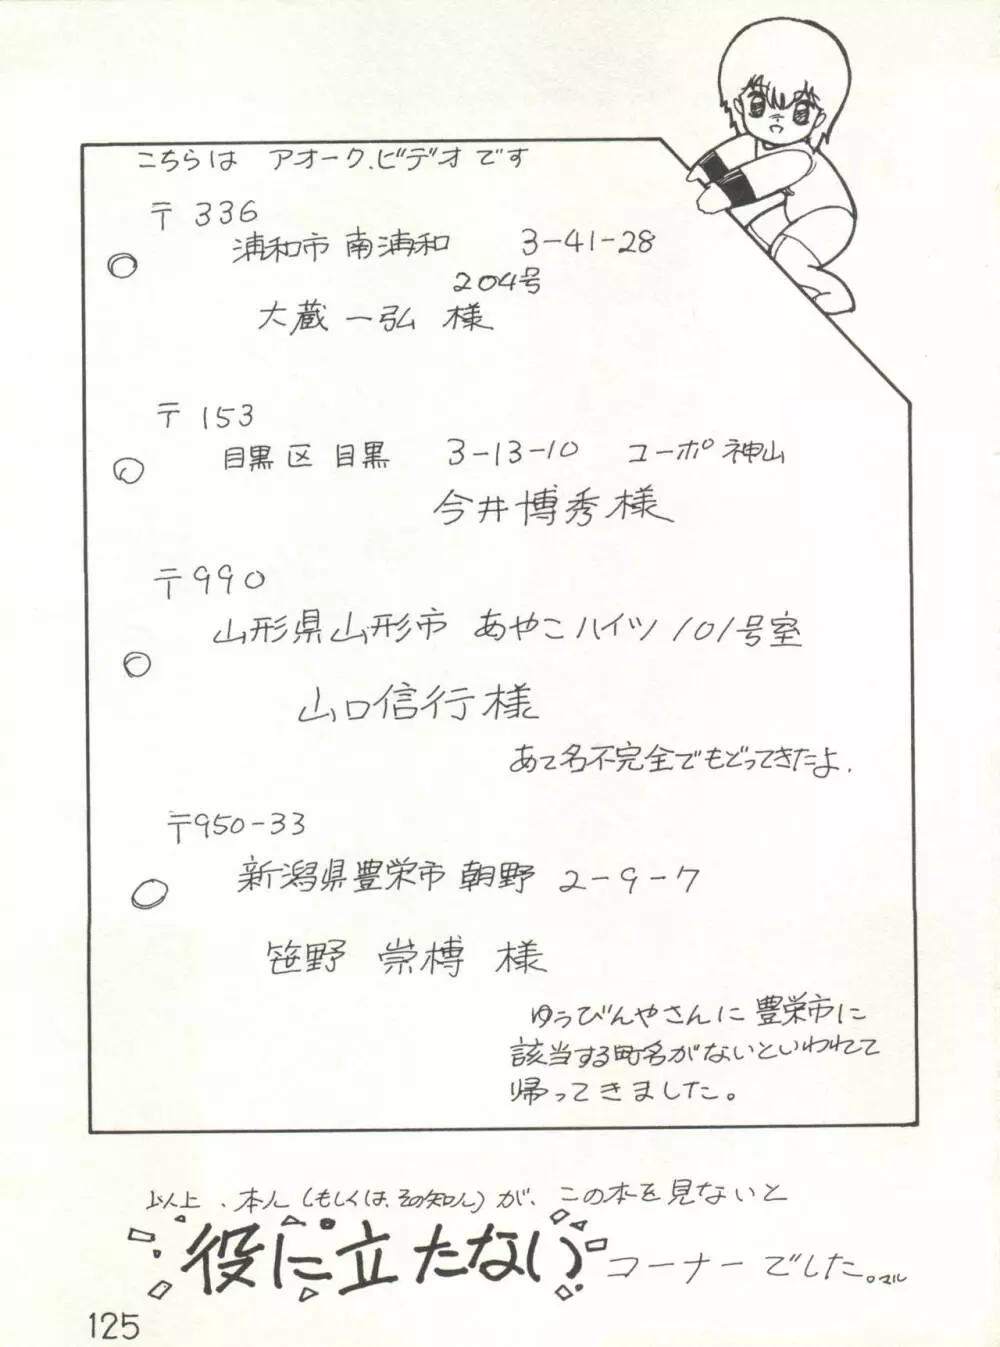 こちらは アオーク.ビデオです
〒 336
浦和市 南浦和 3-41-28
204号
大蔵 一弘 様
〒 153
目黒区 目黒 3-13-10 コーポ神山
今井博秀様
〒990
山形県山形市 あやこハイツ 101号室
山口信行様
あて名不完全でもどってきたよ.
〒950-33
新潟県豊栄市 朝野 2-9-7
笹野 崇榑 様
ゆうびんやさんに 豊栄市に
該当する町名がないといわれて
帰ってきました。
以上、本人(もしくは、その知人)が、この本を見ないと
役に立たない コーナーでした。マル
125